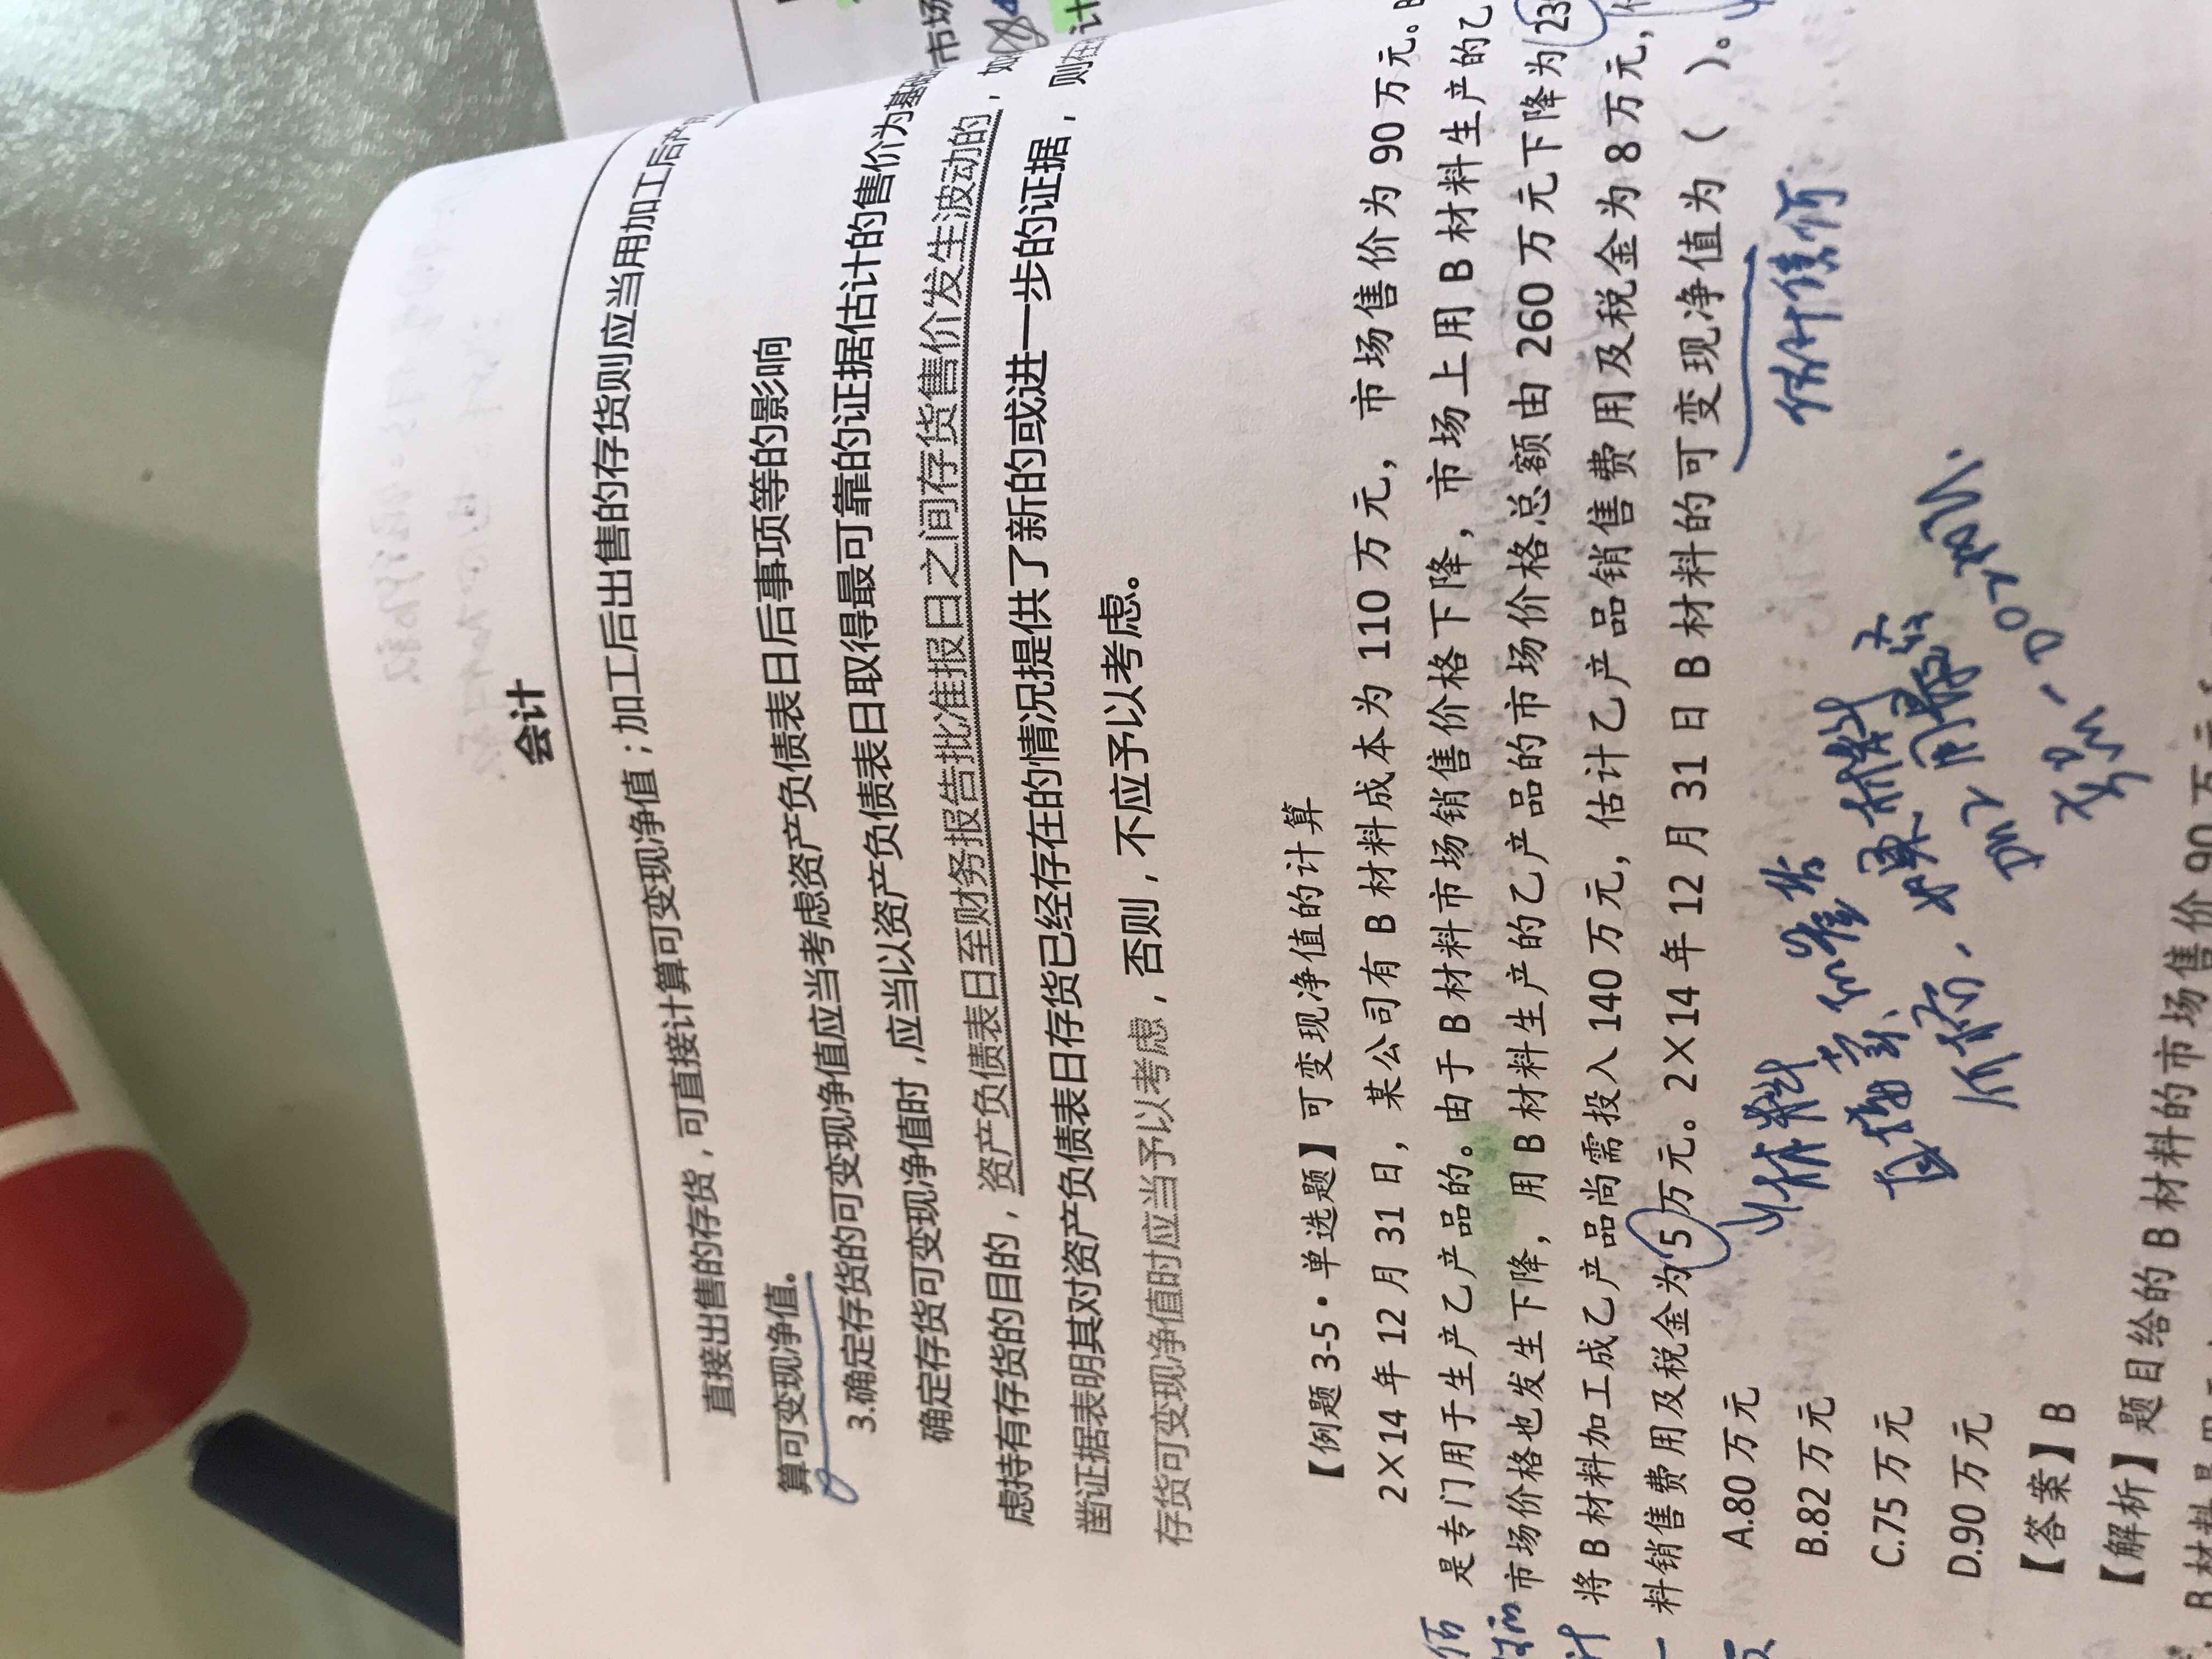 会计
直接出售的存货，可直接计算可变现净值；加工后出售的存货则应当用加工后产
算可变现净值。
3.确定存货的可变现净值应当考虑资产负债表日后事项等的影响
确定存货可变现净值时，应当以资产负债表日取得最可靠的证据估计的售价为基础
虑持有存货的目的，资产负债表日至财务报告批准报日之间存货售价发生波动的，如
凿证据表明其对资产负债表日存货已经存在的情况提供了新的或进一步的证据，则在
存货可变现净值时应当予以考虑，否则，不应予以考虑。
【例题3-5·单选题】可变现净值的计算
2×14年12月31日，某公司有B材料成本为110万元，市场售价为90万元。B
是专门用于生产乙产品的。由于B材料市场销售价格下降，市场上用B材料生产的乙
市场价格也发生下降，用B材料生产的乙产品的市场价格总额由260万元下降为23
将B材料加工成乙产品尚需投入140万元，估计乙产品销售费用及税金为8万元，
料销售费用及税金为5万元。2×14年12月31日B材料的可变现净值为（ ）。
估计售价
A.80万元
B.82万元
C.75万元
D.90万元
【答案】B
【解析】题目给的B材料的市场售价90万元
市场
计